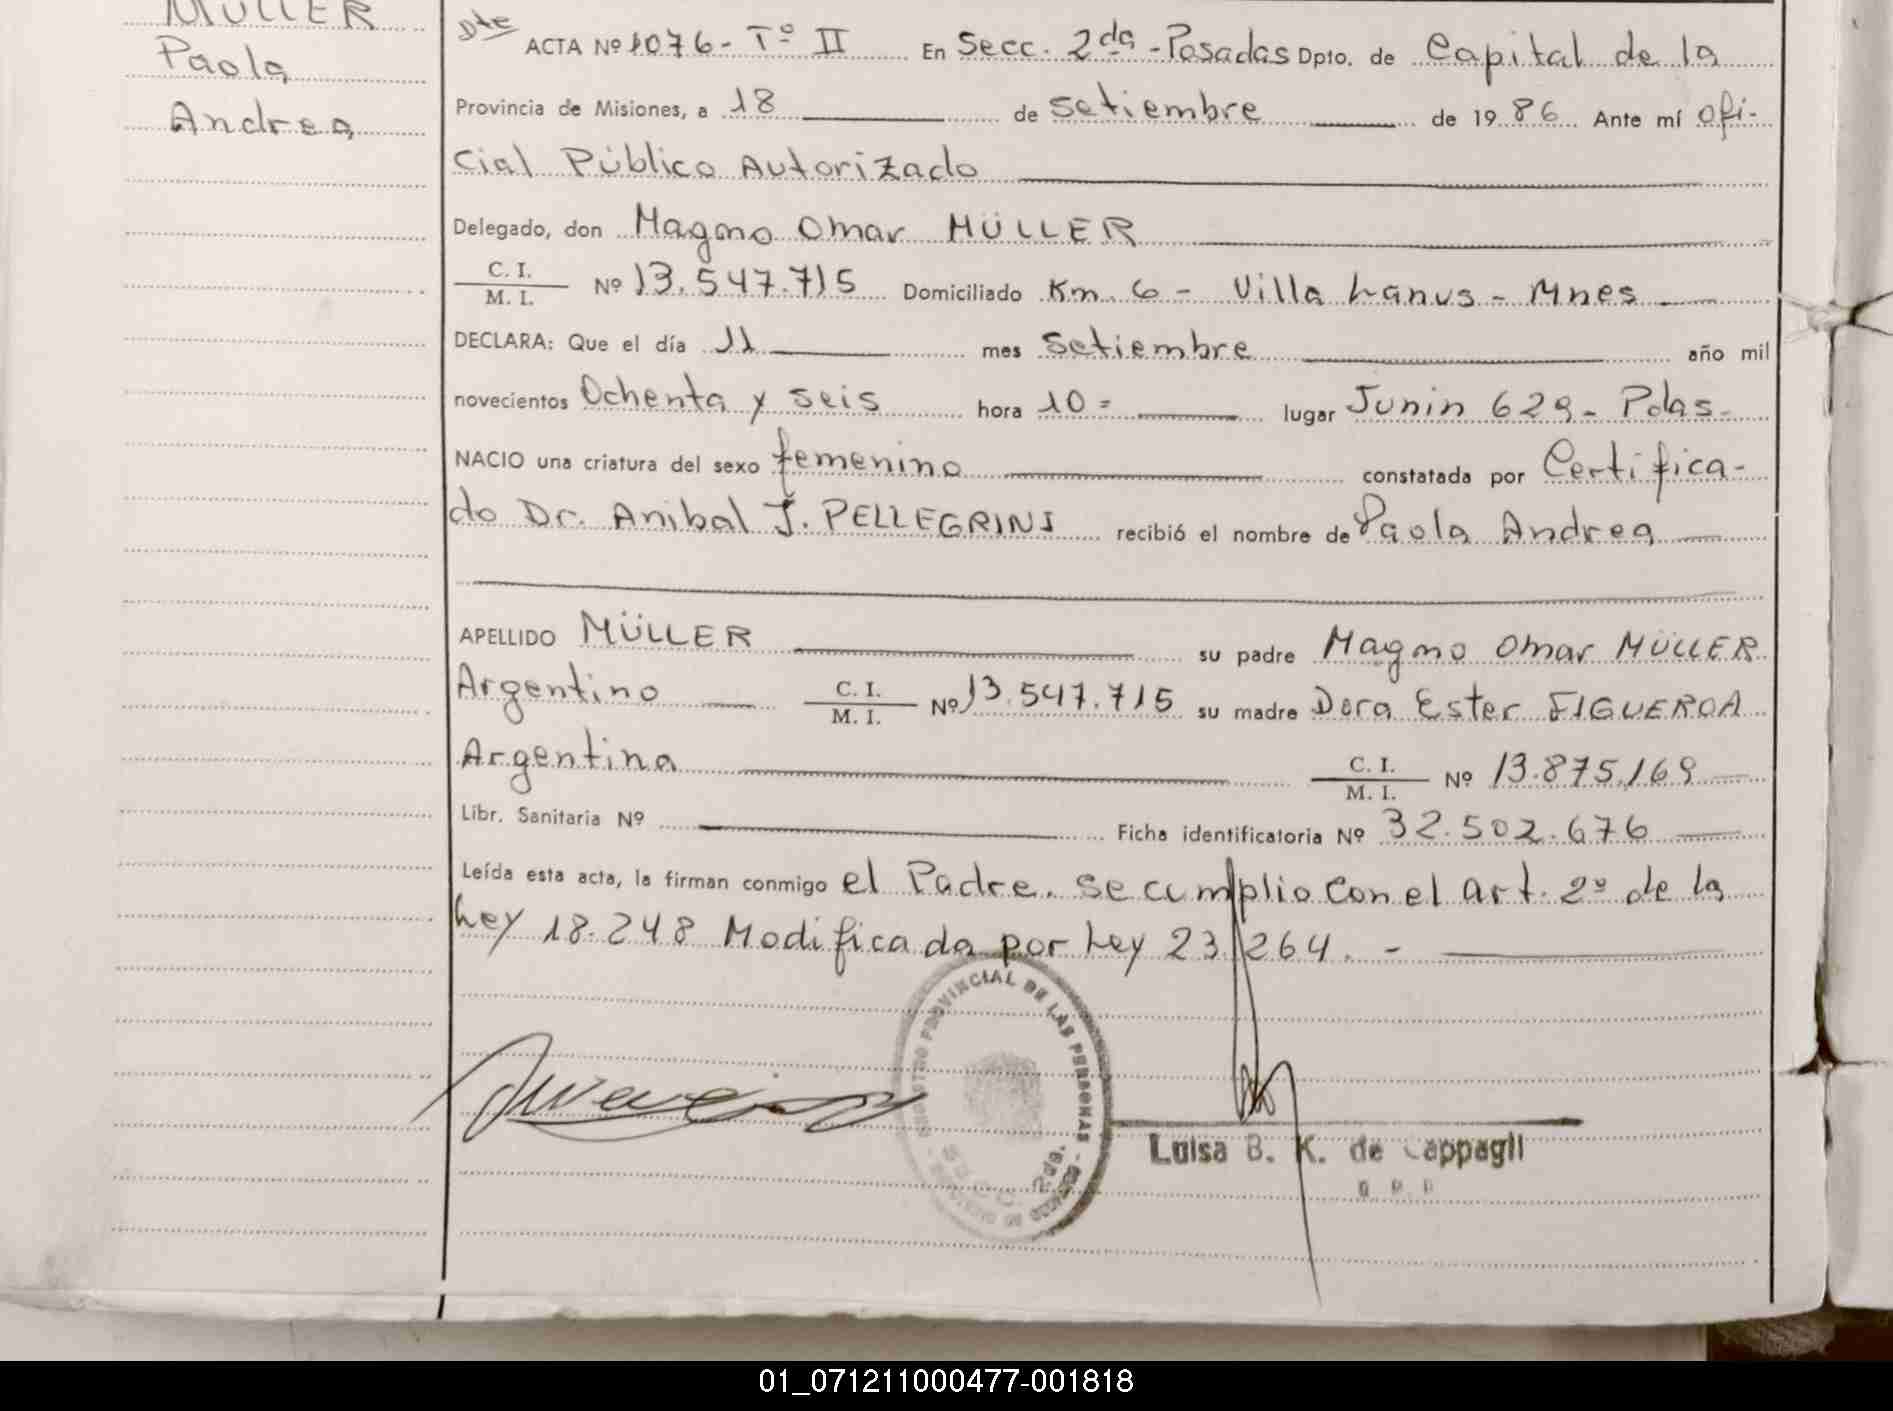 MÜLLER
Paola
Andrea
Dte ACTA Nº 1076 - Tº II En Secc. 2da - Posadas Dpto. de Capital de la
Provincia de Misiones, a 18 de Setiembre de 1986 Ante mí Ofi-
cial Público Autorizado
Delegado, don Magno Omar MÜLLER
C. I.
M. I. Nº 13.547.715 Domiciliado Km. 6 - Villa Lanus - Mnes
DECLARA: Que el día 11 mes Setiembre año mil
novecientos Ochenta y seis hora 10= lugar Junin 629- Pdas-
NACIO una criatura del sexo femenino constatada por Certifica-
do Dr. Anibal J. PELLEGRINI recibió el nombre de Paola Andrea
APELLIDO MÜLLER su padre Magno Omar MÜLLER
Argentino C. I.
M. I. Nº 13.547.715 su madre Dora Ester FIGUEROA
Argentina C. I.
M. I. Nº 13.875.169
Libr. Sanitaria Nº Ficha identificatoria Nº 32.502.676
Leída esta acta, la firman conmigo el Padre. Se cumplio con el art. 2º de la
Ley 18.248 Modificada por Ley 23.264. -
REGISTRO PROVINCIAL DE LAS PERSONAS
SECC. 2da.
Luisa B. K. de Cappagli
01_071211000477-001818